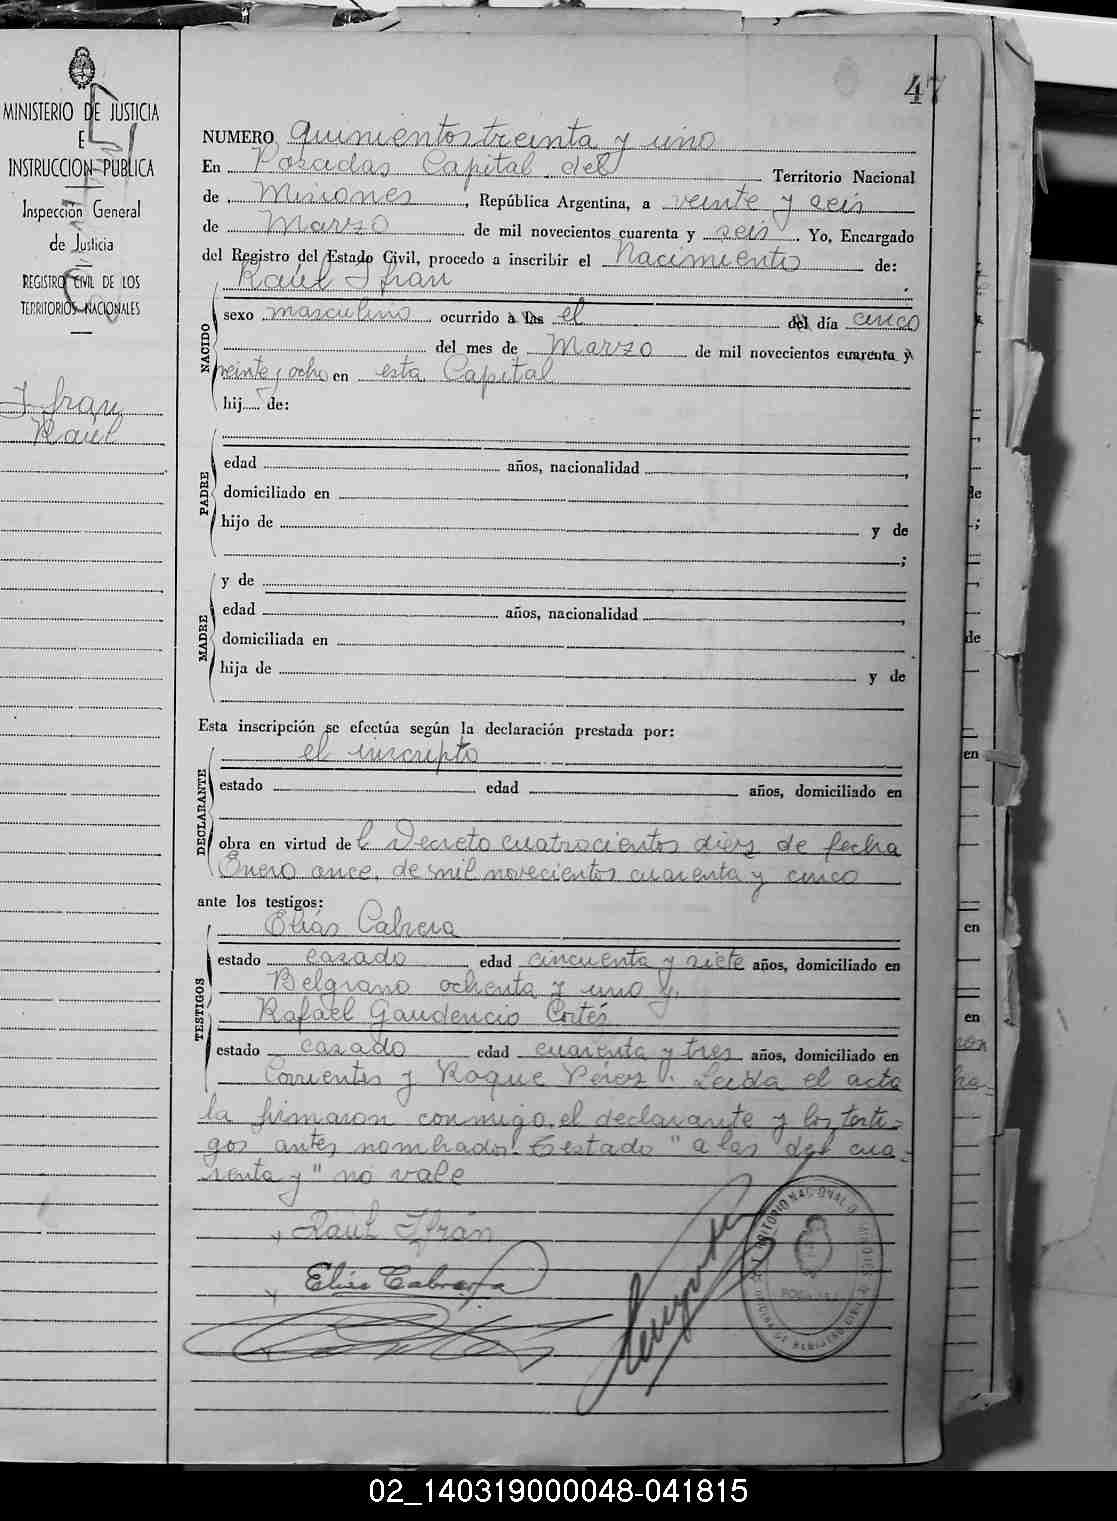 47
MINISTERIO DE JUSTICIA
E
INSTRUCCION PUBLICA
Inspección General
de Justicia
REGISTRO CIVIL DE LOS
TERRITORIOS NACIONALES
Ifran
Raúl
NUMERO quinientos treinta y uno
En Posadas Capital del Territorio Nacional
de Misiones, República Argentina, a veinte y seis
de Marzo de mil novecientos cuarenta y seis. Yo, Encargado
del Registro del Estado Civil, procedo a inscribir el Nacimiento de:
Raúl Ifran
NACIDO
sexo masculino ocurrido a las el del día cinco
del mes de Marzo de mil novecientos cuarenta y
veinte y ocho en esta Capital
hij de:
PADRE
edad años, nacionalidad ,
domiciliado en
hijo de y de
;
MADRE
y de
edad años, nacionalidad ,
domiciliada en
hija de y de
Esta inscripción se efectúa según la declaración prestada por:
DECLARANTE
el inscripto
estado edad años, domiciliado en
obra en virtud del Decreto cuatrocientos diez de fecha
Enero once, de mil novecientos cuarenta y cinco
ante los testigos:
TESTIGOS
Elías Cabrera
estado casado edad cincuenta y siete años, domiciliado en
Belgrano ochenta y uno y,
Rafael Gaudencio Cortés
estado casado edad cuarenta y tres años, domiciliado en
Corrientes y Roque Pérez. Leída el acta
la firmaron conmigo, el declarante y los testi-
gos antes nombrados. Testado "a las del cua-
renta y" no vale
Raúl Ifrán
Elias Cabrera
POSADAS
de
;
de
en
en
en
02_140319000048-041815